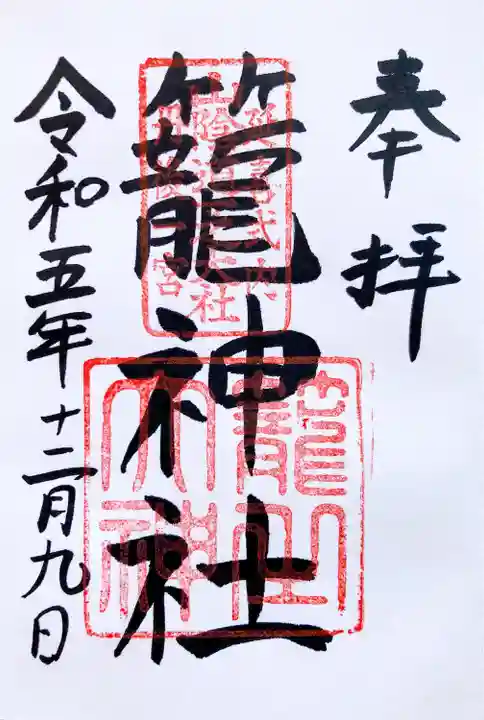 奉拝
籠神社
延喜式内
山陰道大社
丹後一宮
令和五年十二月九日